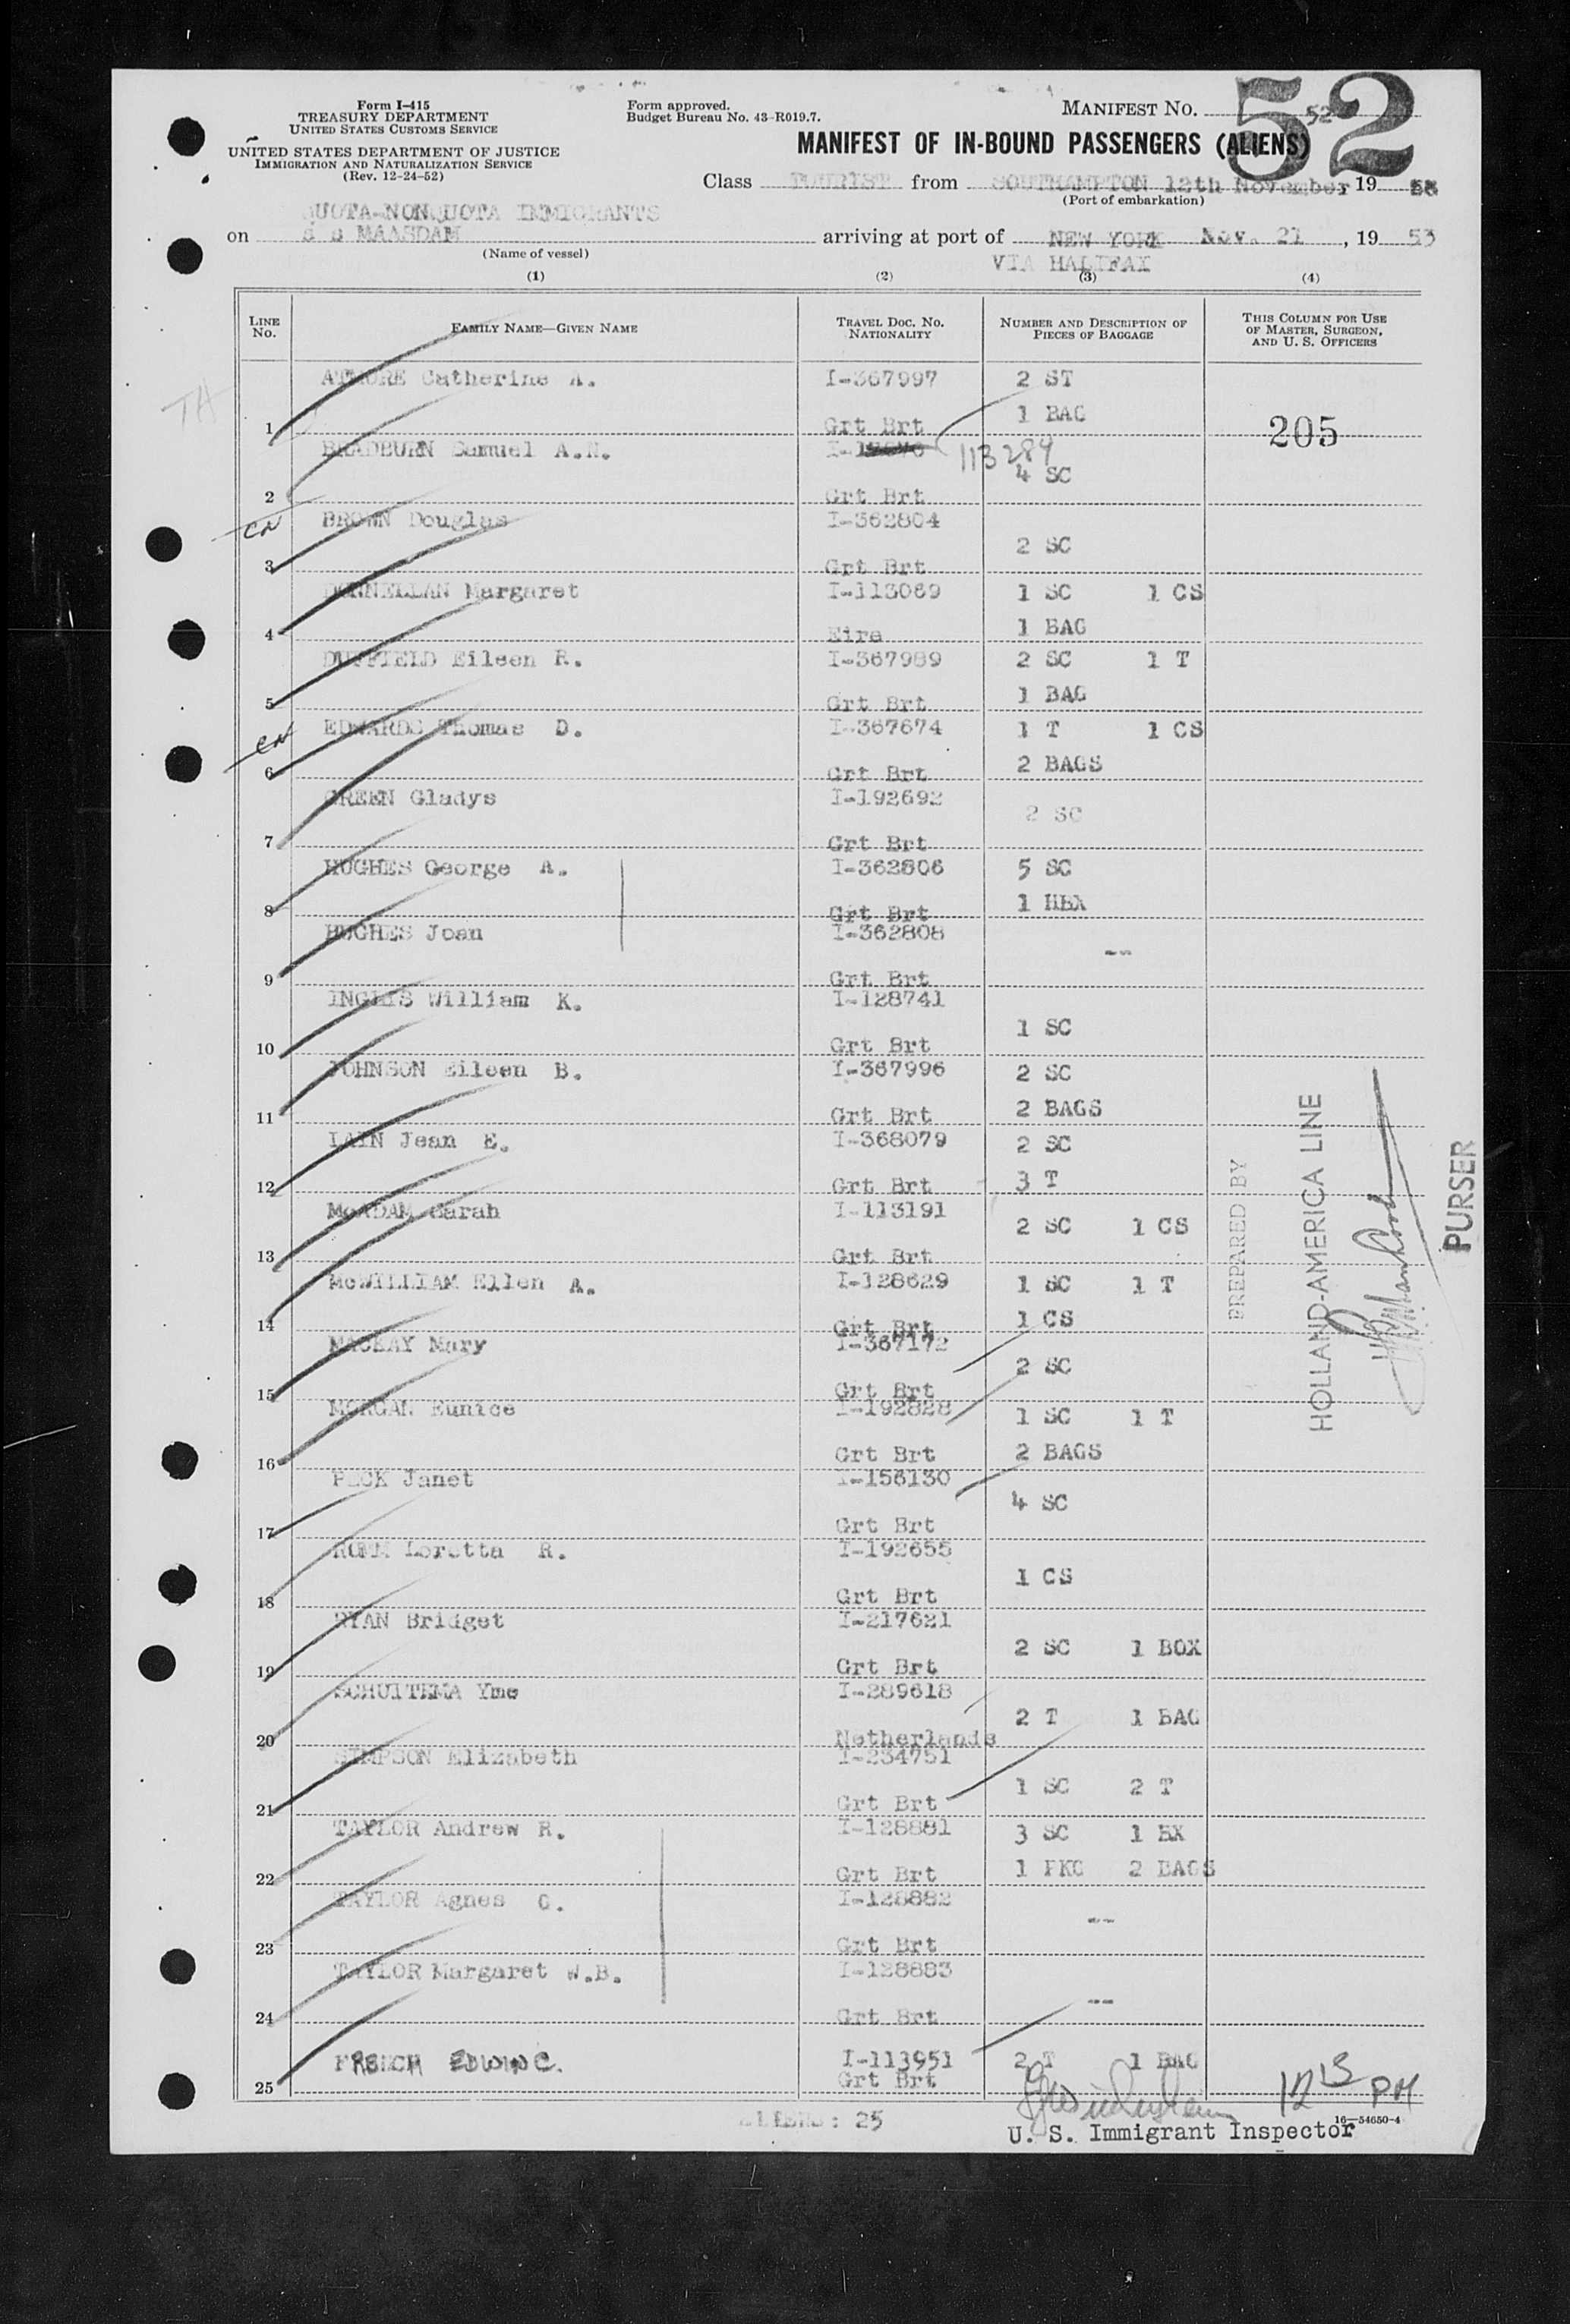 Form I-415
TREASURY DEPARTMENT
UNITED STATES CUSTOMS SERVICE
UNITED STATES DEPARTMENT OF JUSTICE
IMMIGRATION AND NATURALIZATION SERVICE
(Rev. 12-24-52)
Form approved.
Budget Bureau No. 43-R019.7.
MANIFEST NO. 52
52
MANIFEST OF IN-BOUND PASSENGERS (ALIENS)
Class TOURIST from SOUTHAMPTON 12th November, 19 53
(Port of embarkation)
QUOTA-NONQUOTA IMMIGRANTS
on S S MAASDAM arriving at port of NEW YORK Nov. 21, 19 53
(Name of vessel)
VIA HALIFAX
(1) (2) (3) (4)
LINE No. FAMILY NAME—GIVEN NAME TRAVEL DOC. No. NATIONALITY NUMBER AND DESCRIPTION OF PIECES OF BAGGAGE THIS COLUMN FOR USE OF MASTER, SURGEON, AND U. S. OFFICERS
TH
ATMORE Catherine A. I-367997 2 ST
1 Grt Brt 1 BAG 205
BRADBURN Samuel A.N. 113284
4 SC
2 Grt Brt
CN BROWN Douglas I-362804
2 SC
3 Grt Brt
DONNELLAN Margaret I-113069 1 SC 1 CS
4 Eire 1 BAG
DUFFIELD Eileen R. I-367989 2 SC 1 T
5 Grt Brt 1 BAG
CN EDWARDS Thomas D. I-367674 1 T 1 CS
6 Grt Brt 2 BAGS
GREEN Gladys I-192692
2 SC
7 Grt Brt
HUGHES George A. I-362806 5 SC
8 Grt Brt 1 HBX
HUGHES Joan I-362808
--
9 Grt Brt
INGLIS William K. I-128741
1 SC
10 Grt Brt
JOHNSON Eileen B. I-367996 2 SC
11 Grt Brt 2 BAGS
LAIN Jean E. I-368079 2 SC
12 Grt Brt 3 T
McADAM Sarah I-113191
2 SC 1 CS
13 Grt Brt
McWILLIAM Ellen A. I-128629 1 SC 1 T
14 Grt Brt 1 CS
MACKAY Mary I-367172
2 SC
15 Grt Brt
MORGAN Eunice I-192828 1 SC 1 T
16 Grt Brt 2 BAGS
PECK Janet I-156130
4 SC
17 Grt Brt
Loretta R. I-192655
1 CS
18 Grt Brt
RYAN Bridget I-217621
2 SC 1 BOX
19 Grt Brt
SCHUITEMA Yme I-289618
2 T 1 BAG
20 Netherlands
SIMPSON Elizabeth I-234751
1 SC 2 T
21 Grt Brt
TAYLOR Andrew R. I-128881 3 SC 1 BX
22 Grt Brt 1 PKG 2 BAGS
TAYLOR Agnes C. I-128882
--
23 Grt Brt
TAYLOR Margaret W.B. I-128883
--
24 Grt Brt
FRENCH EDWIN C. I-113951 2 T 1 BAG
25 Grt Brt
PREPARED BY
HOLLAND-AMERICA LINE
PURSER
12 15 PM
ALIENS: 25
U. S. Immigrant Inspector
16—54650-4